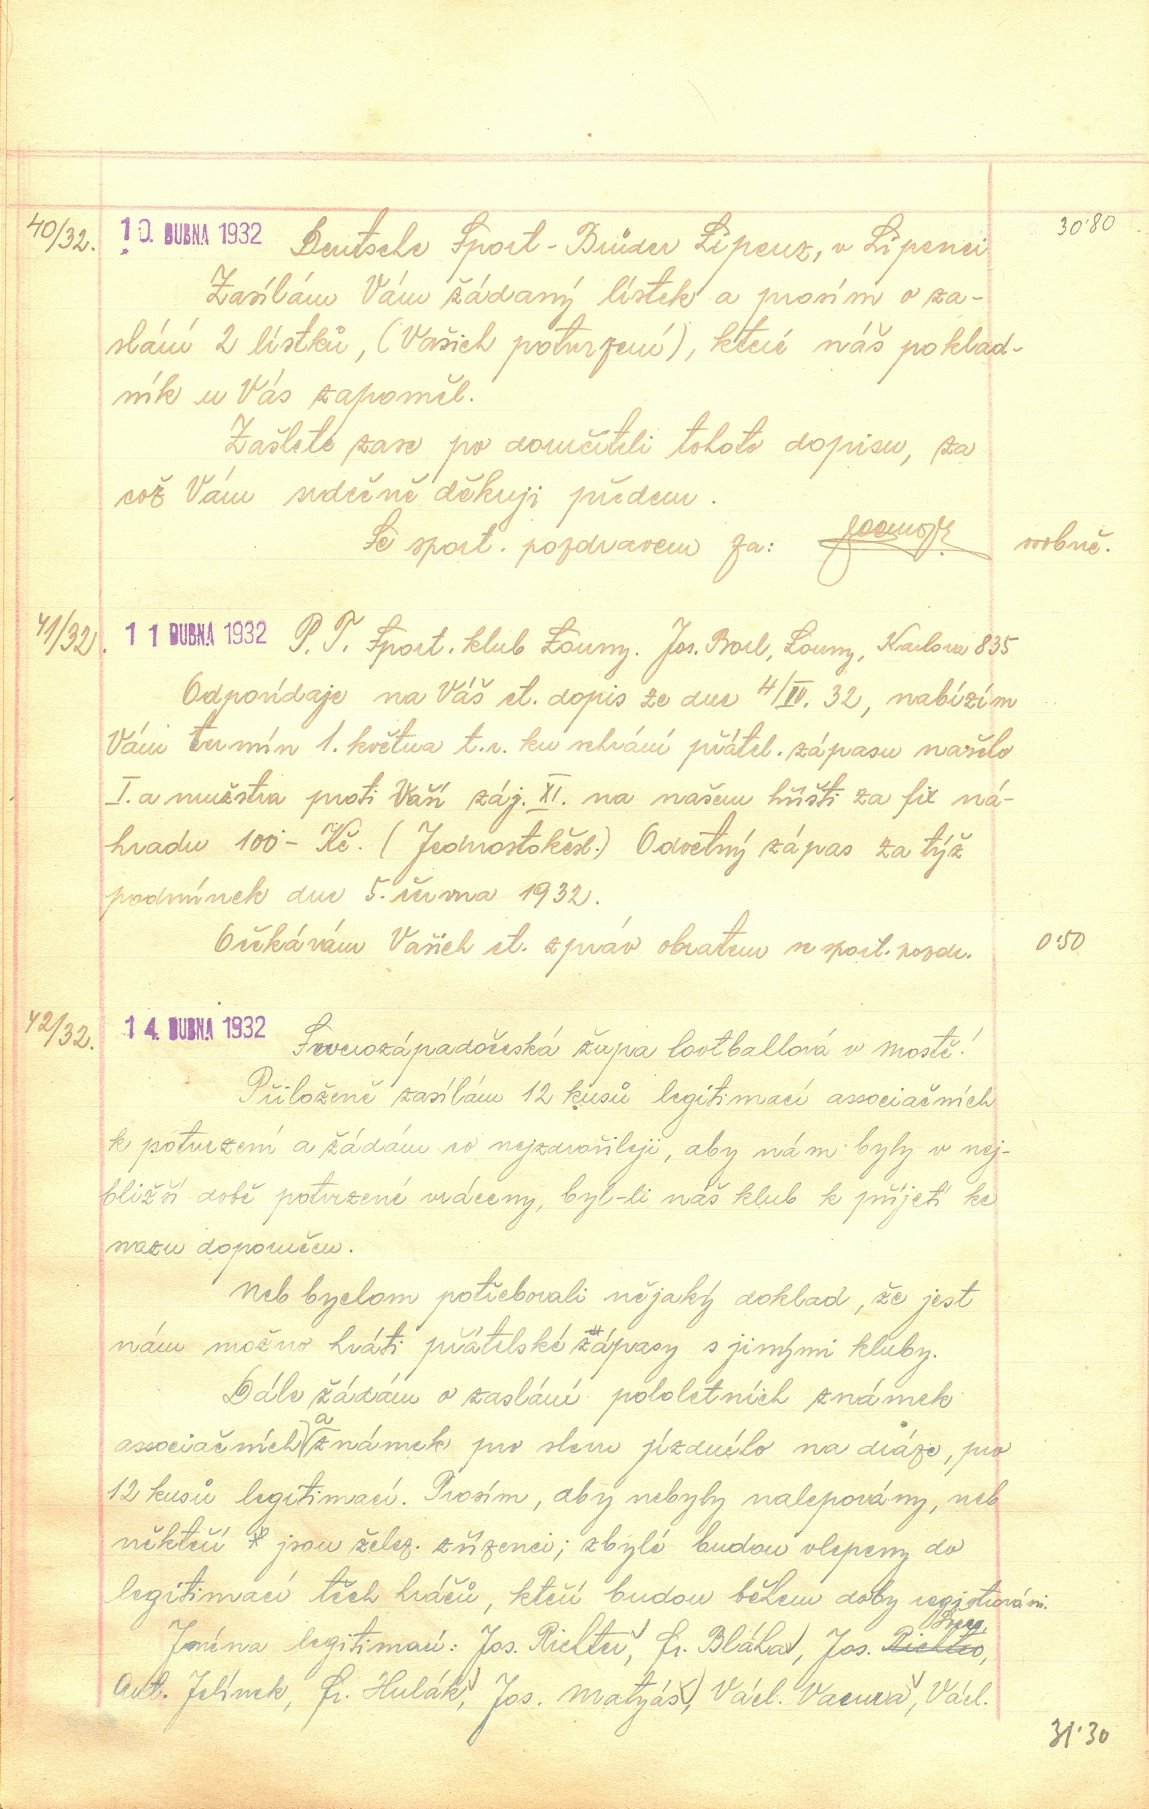 40/32. 10. DUBNA 1932 Deutsche Sport-Brüder Lipenz, v Lipenci 30·80
Zasílám Vám žádaný lístek a prosím o za-
slání 2 lístků, (Vašich potvrzení), které náš poklad-
ník u Vás zapoměl.
Zašlete zase po doručiteli tohoto dopisu, za
což Vám srdečně děkuji předem.
Se sport. pozdravem za: osobně.
41/32. 11 DUBNA 1932 P. T. Sport. klub Louny. Jos. Borl, Louny, Karlova 835
Odpovídaje na Váš ct. dopis ze dne 4/IV. 32, nabízím
Vám termín 1. května t.r. ku sehrání přátel. zápasu našeho
I. a mužstva proti Vaší záj. XI. na našem hřišti za fix ná-
hradu 100·- Kč. (Jednostokčsl.) Odvetný zápas za týž
podmínek dne 5. června 1932.
Očekávám Vašich ct. zpráv obratem se sport. pozdr. 0·50
42/32. 14. DUBNA 1932 Severozápadočeská župa footballová v Mostě!
Přiloženě zasílám 12 kusů legitimací associačních
k potvrzení a žádám co nejzdvořileji, aby nám byly v nej-
bližší době potvrzené vráceny, byl-li náš klub k přijetí ke
svazu doporučen.
Neb bychom potřebovali nějaký doklad, že jest
nám možno hráti přátelské zápasy s jinými kluby.
Dále žádám o zaslání pololetních známek
associačních) a známek pro slevu jízdného na dráze, pro
12 kusů legitimací. Prosím, aby nebyly nalepovány, neb
někteří jsou želez. zřízenci; zbylé budou vlepeny do
legitimací těch hráčů, kteří budou během doby registrováni.
Jména legitimací: Jos. Richter, Fr. Bláha, Jos. Richter,
Ant. Jelínek, Fr. Hulák, Jos. Matyáš, Václ. Vacura, Václ.
31·30